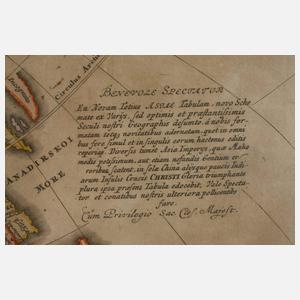 Circulus Arcti
ANADIRSKOI
MORE
BENEVOLE SPECTATOR
En Novam Totius ASIAE Tabulam, novo Sche
mate ex Varijs, sed optimis et præstantissimis
Seculi nostri Geographis desumtâ a nobis, for-
matam totqs, novitatibus adornatam, quot in omni
bus fere simul et in singulis eorum hactenus editis
reperias. Diversis tumet, alia Imperijs, qua Maho
medis potissimum, aut etiam nefandis Gentium er-
roribus scateat, in sola China aliisque paucis Indi
arum Insulis Crucis CHRISTI Gloria triumphante
plura ipsa præsens Tabula edocebit, Vale Specta-
tor et conatibus nostris ulteriora pollicentibus
fave.
Cum Privilegio Sac. Cæs. Majest.